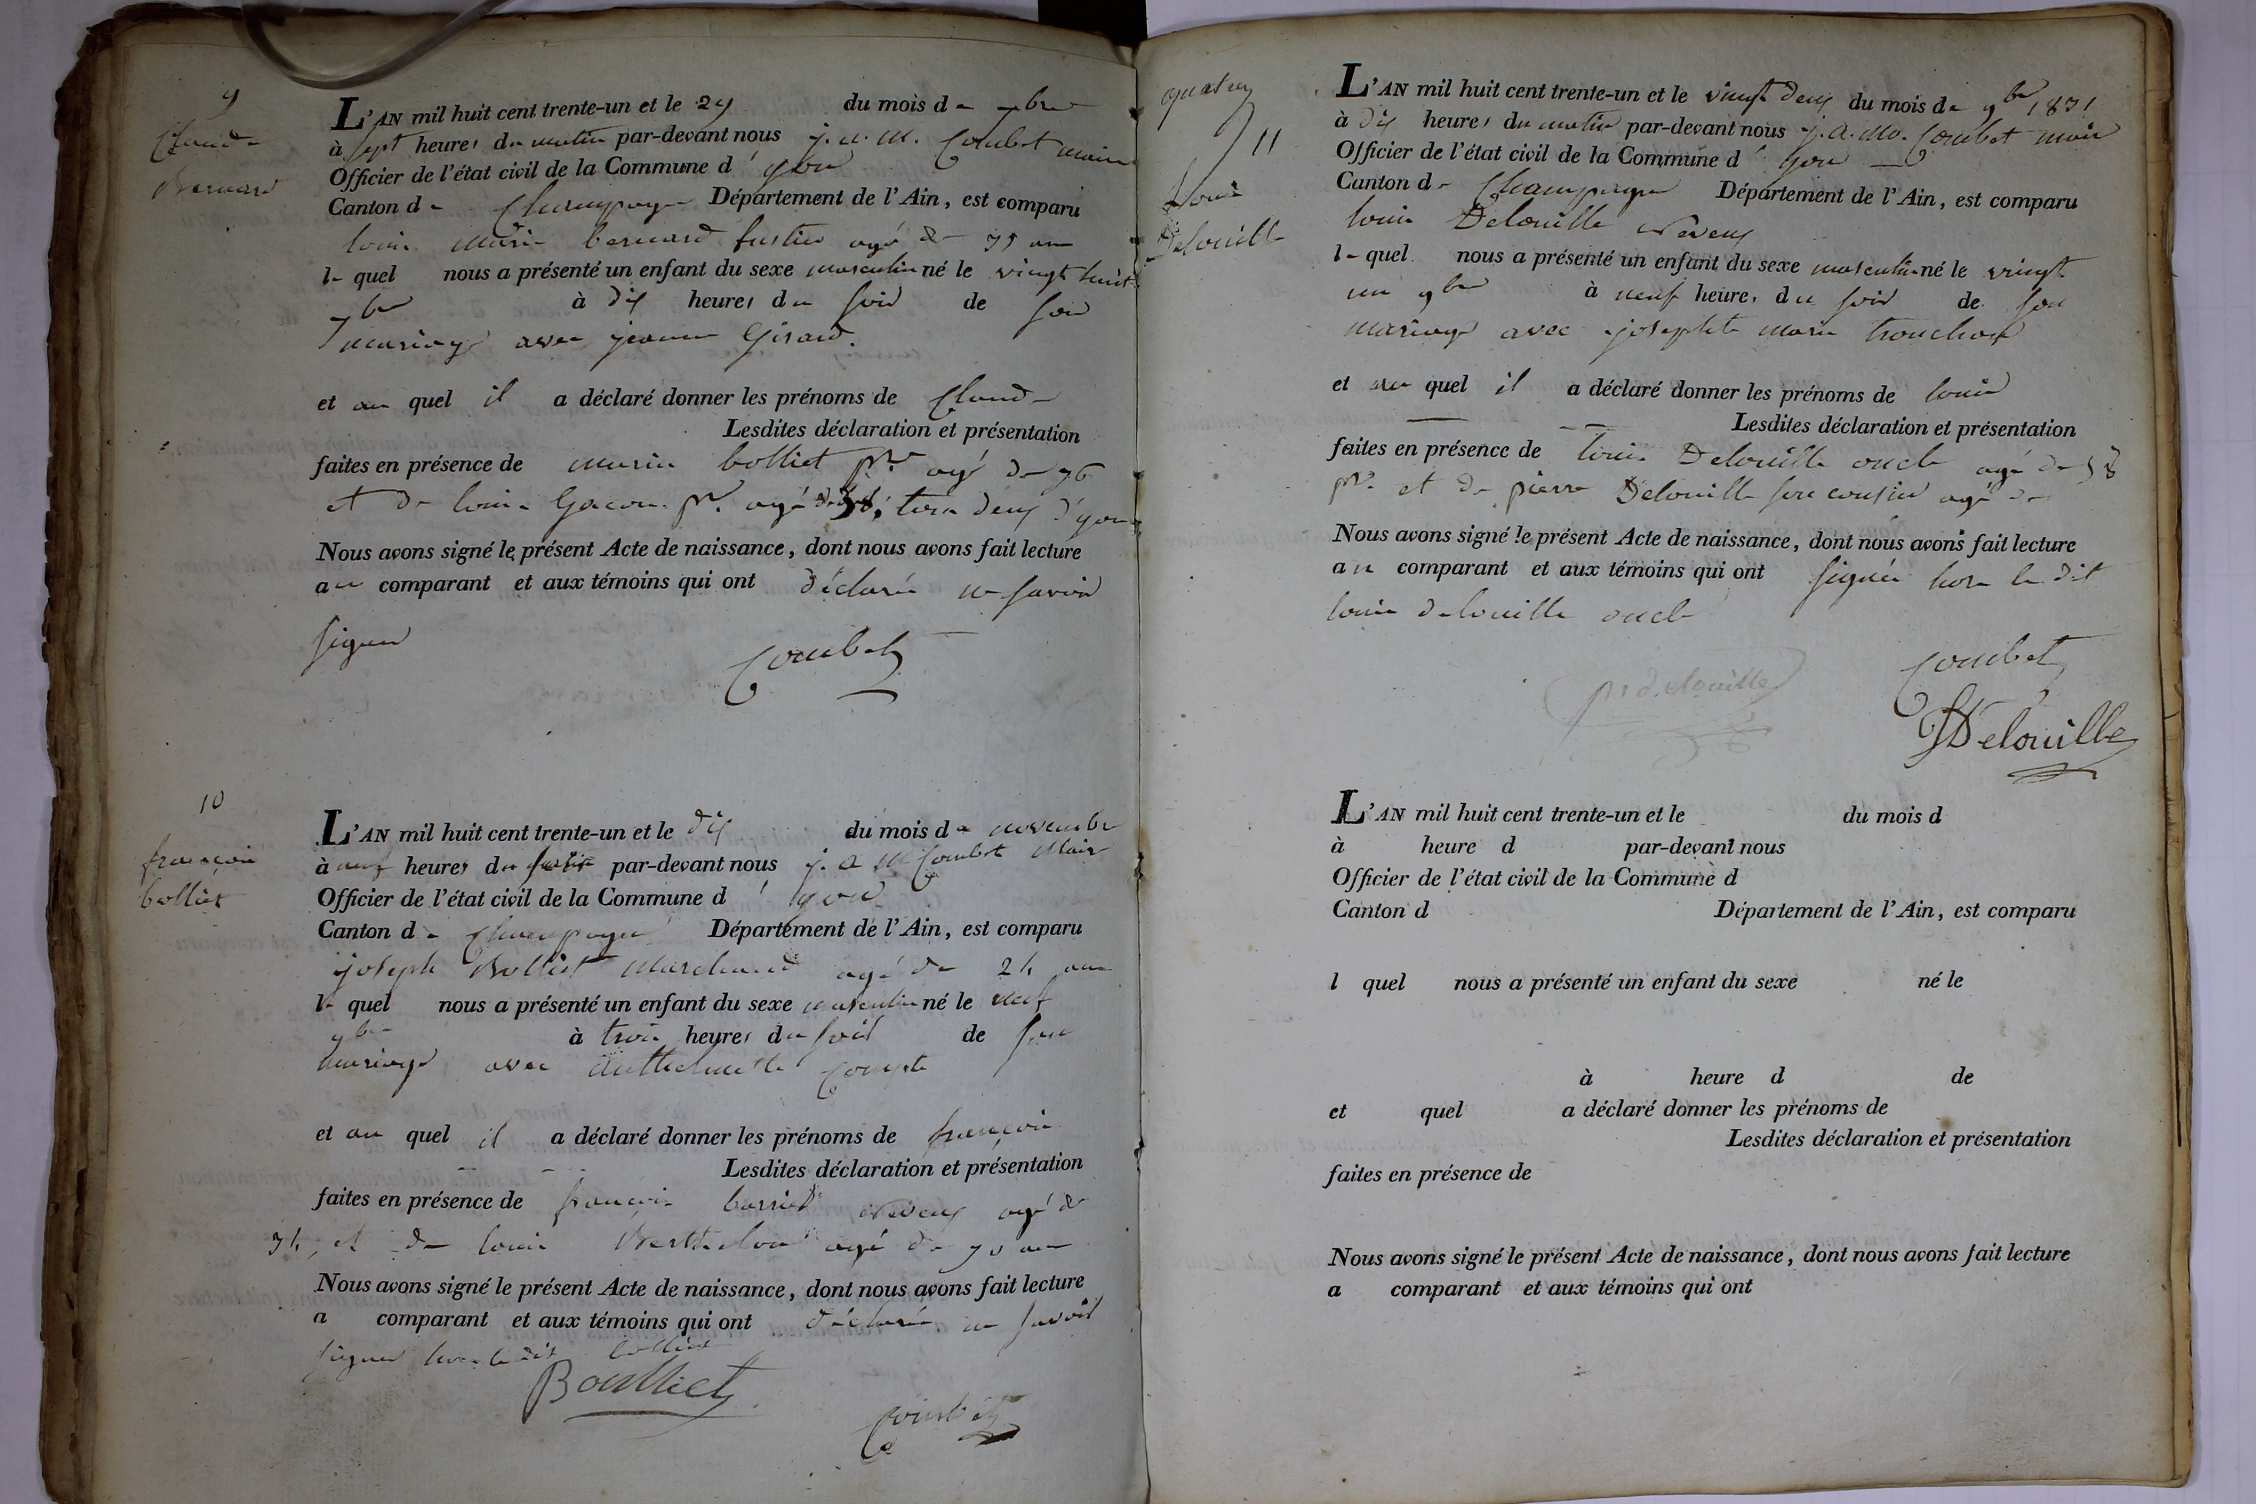 9
Claude
Bernard
L'AN mil huit cent trente-un et le 29 du mois de 7bre
à sept heures du matin par-devant nous j. a. M. Combet maire
Officier de l'état civil de la Commune d'yon
Canton de Champagne Département de l'Ain, est comparu
louis marie bernard age de 35 ans
le quel nous a présenté un enfant du sexe masculin né le vingt huit
7bre à dix heures du soir de son
mariage avec jeanne Girard.
et au quel il a déclaré donner les prénoms de Claude
Lesdites déclaration et présentation
faites en présence de marin bolliet pre agé de 76
et de louis Gacon pr. agé de 38, tous deux d'yon
Nous avons signé le présent Acte de naissance, dont nous avons fait lecture
au comparant et aux témoins qui ont déclaré ne savoir
signer
Combet
10
françois
bolliet
L'AN mil huit cent trente-un et le dix du mois de novembre
à neuf heures du par-devant nous j. a M Combet Maire
Officier de l'état civil de la Commune d'yon
Canton de Champagne Département de l'Ain, est comparu
joseph Bolliet Marchand agé de 24 ans
le quel nous a présenté un enfant du sexe masculin né le neuf
9bre à trois heures du soir de son
mariage avec Anthelmette Compte
et au quel il a déclaré donner les prénoms de françois
Lesdites déclaration et présentation
faites en présence de françois agé de
34, et de louis Berthelon agé de 70 ans
Nous avons signé le présent Acte de naissance, dont nous avons fait lecture
a comparant et aux témoins qui ont déclaré ne savoir
signer hors le dit bolliet
Boulliet
Combet
11
Louis
Delouille
L'AN mil huit cent trente-un et le vingt deux du mois de 9bre 1831
à dix heures du matin par-devant nous j. a. M. Combet maire
Officier de l'état civil de la Commune d'yon
Canton de Champagne Département de l'Ain, est comparu
louis Delouille neveux
le quel nous a présenté un enfant du sexe masculin né le vingt
un 9bre à neuf heures du soir de son
mariage avec josephte marie trouchon
et au quel il a déclaré donner les prénoms de louis
Lesdites déclaration et présentation
faites en présence de louis Delouille oncle agé de 58
pr. et de pierre Delouille son cousin agé de
Nous avons signé le présent Acte de naissance, dont nous avons fait lecture
au comparant et aux témoins qui ont signés hors le dit
louis delouille oncle
Combet
pr delouille
Delouille
L'AN mil huit cent trente-un et le du mois d
à heure d par-devant nous
Officier de l'état civil de la Commune d
Canton d Département de l'Ain, est comparu
l quel nous a présenté un enfant du sexe né le
à heure d de
et quel a déclaré donner les prénoms de
Lesdites déclaration et présentation
faites en présence de
Nous avons signé le présent Acte de naissance, dont nous avons fait lecture
a comparant et aux témoins qui ont